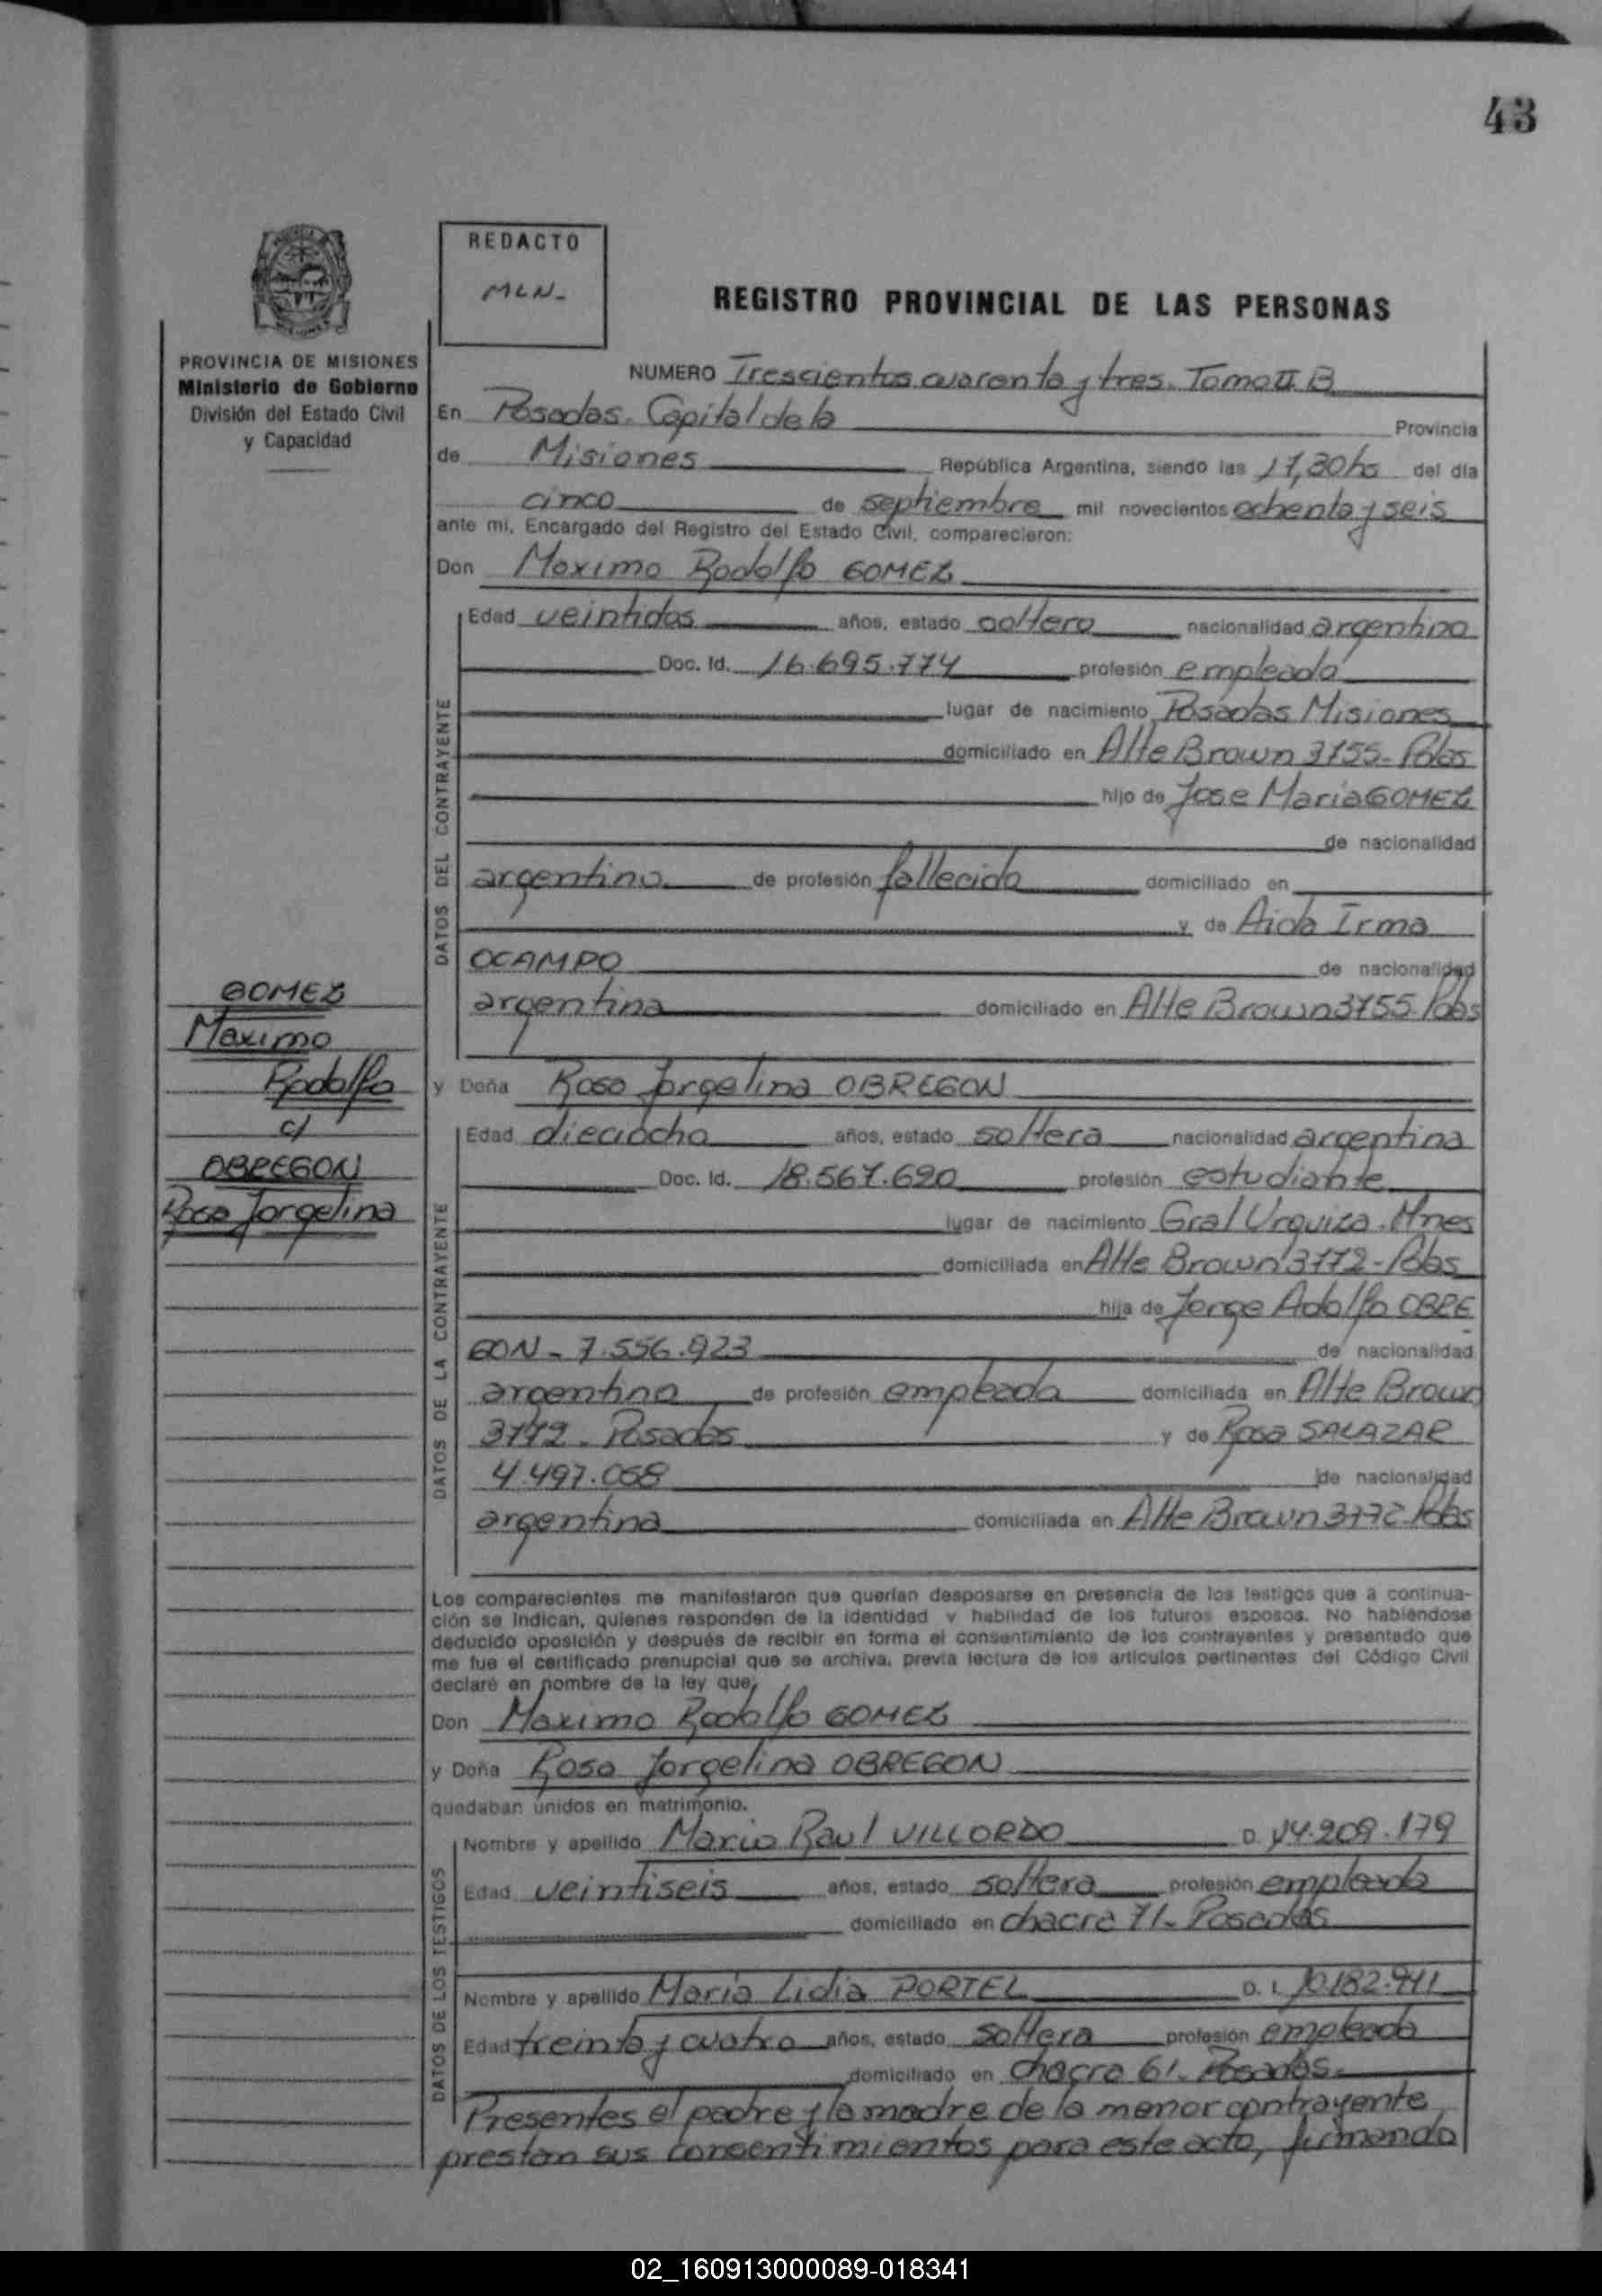 43
REDACTO
MLN-
REGISTRO PROVINCIAL DE LAS PERSONAS
PROVINCIA DE MISIONES
Ministerio de Gobierno
División del Estado Civil
y Capacidad
NUMERO Trescientos cuarenta y tres. Tomo II B
En Posadas. Capital de la Provincia
de Misiones República Argentina, siendo las 11,30hs del día
cinco de septiembre mil novecientos ochenta y seis
ante mí, Encargado del Registro del Estado Civil, comparecieron:
Don Maximo Rodolfo GOMEZ
DATOS DEL CONTRAYENTE
Edad veintidos años, estado soltero nacionalidad argentino
Doc. Id. 16.695.774 profesión empleado
lugar de nacimiento Posadas Misiones
domiciliado en Alte Brown 3755-Pdas
hijo de Jose Maria GOMEZ
de nacionalidad
argentino de profesión fallecido domiciliado en
y de Aida Irma
OCAMPO de nacionalidad
argentina domiciliado en Alte Brown 3755-Pdas
GOMEZ
Maximo
Rodolfo
c/
OBREGON
Rosa Jorgelina
y Doña Rosa Jorgelina OBREGON
DATOS DE LA CONTRAYENTE
Edad dieciocho años, estado soltera nacionalidad argentina
Doc. Id. 18.567.690 profesión estudiante
lugar de nacimiento Gral Urquiza. Mnes
domiciliada en Alte Brown 3772-Pdas
hija de Jorge Adolfo OBRE
GON- 7.556.923 de nacionalidad
argentino de profesión empleado domiciliada en Alte Brown
3772. Posadas y de Rosa SALAZAR
4.497.058 de nacionalidad
argentina domiciliada en Alte Brown 3772-Pdas
Los comparecientes me manifestaron que querían desposarse en presencia de los testigos que a continua-
ción se indican, quienes responden de la identidad y habilidad de los futuros esposos. No habiéndose
deducido oposición y después de recibir en forma el consentimiento de los contrayentes y presentado que
me fue el certificado prenupcial que se archiva, previa lectura de los artículos pertinentes del Código Civil
declaré en nombre de la ley que:
Don Maximo Rodolfo GOMEZ
y Doña Rosa Jorgelina OBREGON
quedaban unidos en matrimonio.
DATOS DE LOS TESTIGOS
Nombre y apellido Mario Raul VILLORDO D. 14.209.179
Edad veintiseis años, estado soltero profesión empleado
domiciliado en chacra 71- Posadas
Nombre y apellido Maria Lidia PORTEL D. I. 10.182.941
Edad treinta y cuatro años, estado soltera profesión empleada
domiciliado en chacra 61- Posadas-
Presentes el padre y la madre de la menor contrayente
prestan sus consentimientos para este acto, firmando
02_160913000089-018341